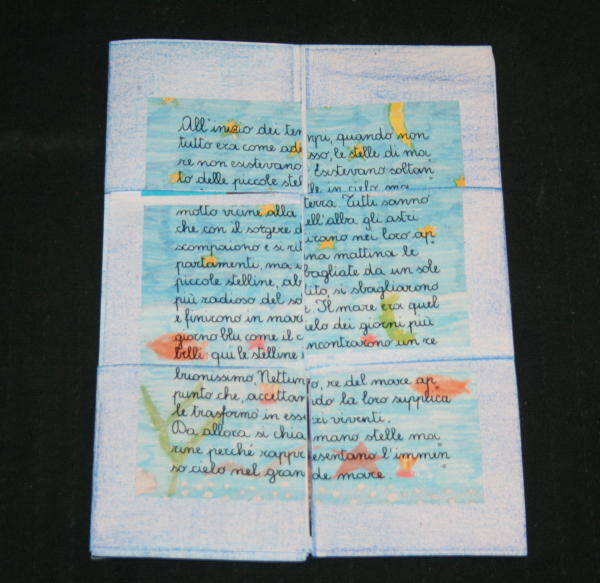 All'inizio dei tempi, quando non
tutto era come adesso, le stelle di ma
re non esistevano. Esistevano soltan
to delle piccole stelle in cielo ma
molto vicine alla terra. Tutti sanno
che con il sorgere dell'alba gli astri
scompaiono e si ritirano nei loro ap
partamenti, ma una mattina le
piccole stelline, abbagliate da un sole
più radioso del solito, si sbagliarono
e finirono in mare. Il mare era quel
giorno blu come il cielo dei giorni più
belli: qui le stelline incontrarono un re
buonissimo, Nettunno, re del mare ap
punto che, accettando la loro supplica
le trasformò in esseri viventi.
Da allora si chiamano stelle ma
rine perché rappresentano l'immen
so cielo nel grande mare.